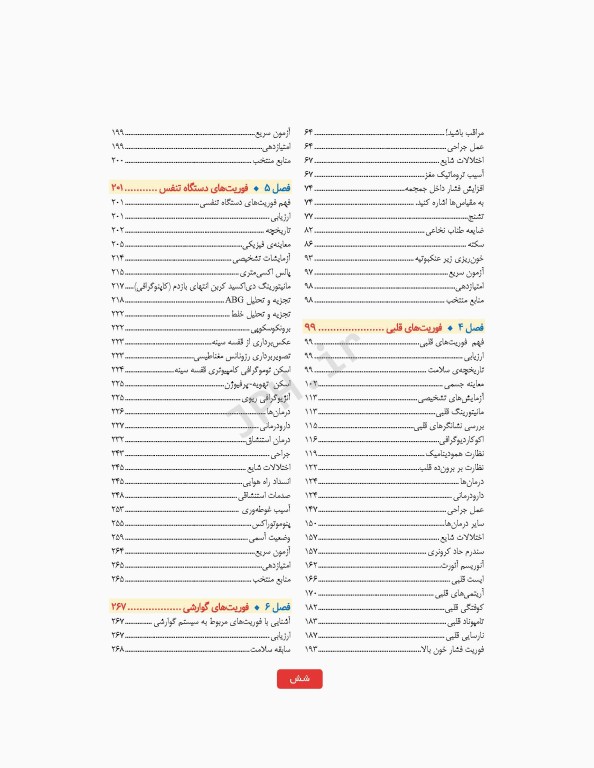 مراقب باشید! ........ ۶۴
عمل جراحی ........ ۶۴
اختلالات شایع ........ ۶۷
آسیب تروماتیک مغز ........ ۶۷
افزایش فشار داخل جمجمه ........ ۷۴
به مقیاس‌ها اشاره کنید. ........ ۷۴
تشنج ........ ۷۷
ضایعه طناب نخاعی ........ ۸۲
سکته ........ ۸۶
خون‌ریزی زیر عنکبوتیه ........ ۹۳
آزمون سریع ........ ۹۷
امتیازدهی ........ ۹۸
منابع منتخب ........ ۹۸
فصل ۴ ◆ فوریت‌های قلبی ........ ۹۹
فهم فوریت‌های قلبی ........ ۹۹
ارزیابی ........ ۹۹
تاریخچه‌ی سلامت ........ ۹۹
معاینه جسمی ........ ۱۰۲
آزمایش‌های تشخیصی ........ ۱۱۳
مانیتورینگ قلبی ........ ۱۱۳
بررسی نشانگرهای قلبی ........ ۱۱۵
اکوکاردیوگرافی ........ ۱۱۶
نظارت همودینامیک ........ ۱۱۹
نظارت بر برون‌ده قلب ........ ۱۲۲
درمان‌ها ........ ۱۲۴
دارودرمانی ........ ۱۲۴
عمل جراحی ........ ۱۴۷
سایر درمان‌ها ........ ۱۵۰
اختلالات شایع ........ ۱۵۷
سندرم حاد کرونری ........ ۱۵۷
آنوریسم آئورت ........ ۱۶۲
ایست قلبی ........ ۱۶۶
آریتمی‌های قلبی ........ ۱۷۰
کوفتگی قلبی ........ ۱۸۲
تامپوناد قلبی ........ ۱۸۳
نارسایی قلبی ........ ۱۸۷
فوریت فشار خون بالا ........ ۱۹۳
آزمون سریع ........ ۱۹۹
امتیازدهی ........ ۱۹۹
منابع منتخب ........ ۲۰۰
فصل ۵ ◆ فوریت‌های دستگاه تنفس ........ ۲۰۱
فهم فوریت‌های دستگاه تنفسی ........ ۲۰۱
ارزیابی ........ ۲۰۱
تاریخچه ........ ۲۰۲
معاینه‌ی فیزیکی ........ ۲۰۵
آزمایشات تشخیصی ........ ۲۱۴
پالس اکسی‌متری ........ ۲۱۵
مانیتورینگ دی‌اکسید کربن انتهای بازدم (کاپنوگرافی) ........ ۲۱۷
تجزیه و تحلیل ABG ........ ۲۱۸
تجزیه و تحلیل خلط ........ ۲۲۲
برونکوسکوپی ........ ۲۲۲
عکس‌برداری از قفسه سینه ........ ۲۲۳
تصویربرداری رزونانس مغناطیسی ........ ۲۲۳
اسکن توموگرافی کامپیوتری قفسه سینه ........ ۲۲۴
اسکن تهویه-پرفیوژن ........ ۲۲۵
آنژیوگرافی ریوی ........ ۲۲۵
درمان‌ها ........ ۲۲۶
دارودرمانی ........ ۲۲۷
درمان استنشاق ........ ۲۳۲
جراحی ........ ۲۴۳
اختلالات شایع ........ ۲۴۵
انسداد راه هوایی ........ ۲۴۵
صدمات استنشاقی ........ ۲۴۸
آسیب غوطه‌وری ........ ۲۵۳
پنوموتوراکس ........ ۲۵۵
وضعیت آسمی ........ ۲۵۹
آزمون سریع ........ ۲۶۴
امتیازدهی ........ ۲۶۵
منابع منتخب ........ ۲۶۵
فصل ۶ ◆ فوریت‌های گوارشی ........ ۲۶۷
آشنایی با فوریت‌های مربوط به سیستم گوارشی ........ ۲۶۷
ارزیابی ........ ۲۶۷
سابقه سلامت ........ ۲۶۸
شش
JPH.ir